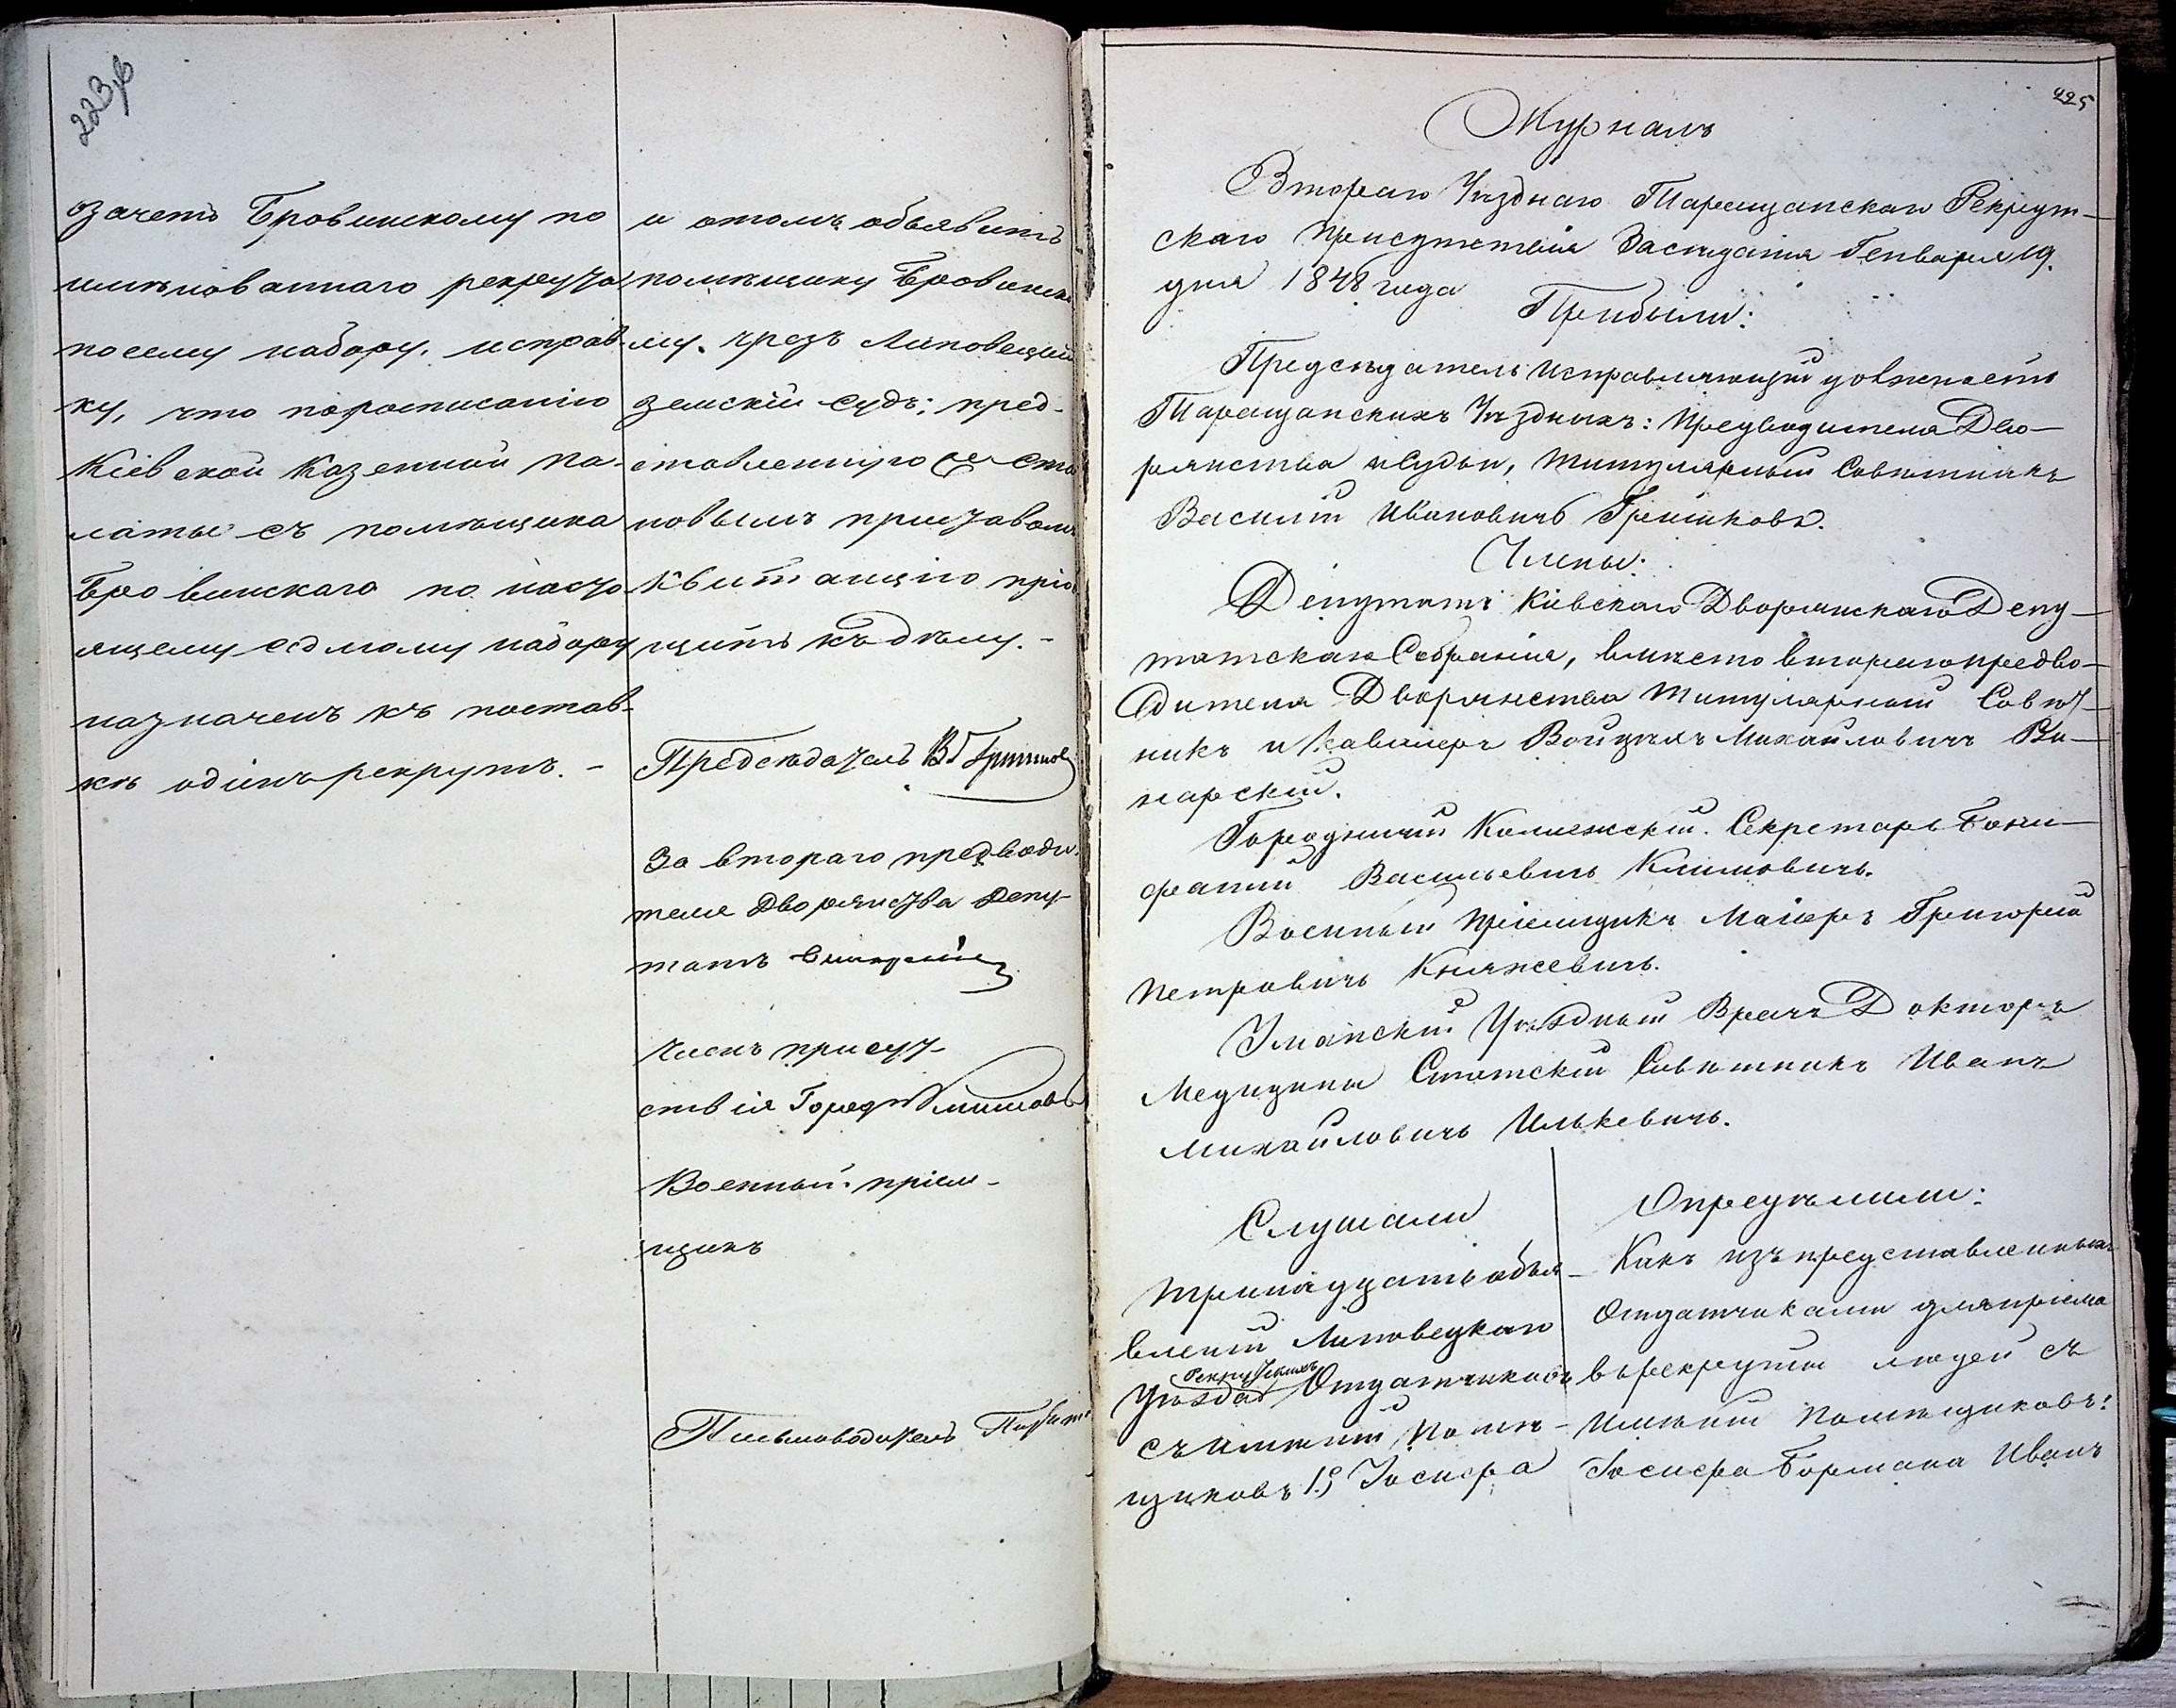 223
озачетѣ Бровинскому по
имянованнаго рекрута
посему набору. исправ-
ку, что поросписанію
Кіевской Казенной Па-
латы съ помѣщика
Бровинскаго по насто-
ящему седмому набору
назначенъ къ постав-
кѣ одинъ рекрутъ. -
и отомъ объявить
помѣщику Бровинско
му. чрезъ Липовецкій
земскій Судъ; пред-
ставленную Ста
новымъ приставомъ
Квитанцію пріо
щить къ дѣлу. -
Предсѣдатель В Гришковъ
За втораго предводи-
теля Дворянства Депу-
татъ
Членъ присут-
ствія Город Климовичъ
Военный пріем-
щикъ
Письмоводитель
225
Журналъ
Втораго Уѣзднаго Таращанскаго Рекрут-
скаго Присутствія Засѣданія Генваря 19.
дня 1848 года
Прибыли:
Предсѣдатель исправляющій должность
Таращанскихъ Уѣздныхъ: Предводителя Дво-
рянства и Судьи, Титулярный Совѣтникъ
Василій Ивановичъ Гришковъ.
Члены:
Депутатъ Кіевскаго Дворянскаго Депу-
татскаго Собранія, вмѣсто втораго предво-
дителя Дворянства Титулярный Совѣт-
никъ и Кавалеръ Войцехъ Михайловичъ Ви-
нарскій.
Городничій Колежскій Секретарь Бони-
фатій Васильевичъ Климовичъ.
Военный Пріемщикъ Маіоръ Григорій
Петровичъ Княжевичъ.
Уманскій Уѣздный Врачъ Докторъ
Медицины Статскій Совѣтникъ Иванъ
Михайловичъ Илькевичъ.
Слушали
Тринадцать объя-
вленій Липовецкаго
Рекрутскихъ
Уѣзда Отдатчиковъ
съ имѣній Помѣ-
щиковъ 1.) Іосифа
Опредѣлили:
Какъ изъ представленныхъ
Отдатчиками для пріема
въ рекруты людей съ
имѣній Помѣщиковъ:
Іосифа Бормана Иванъ